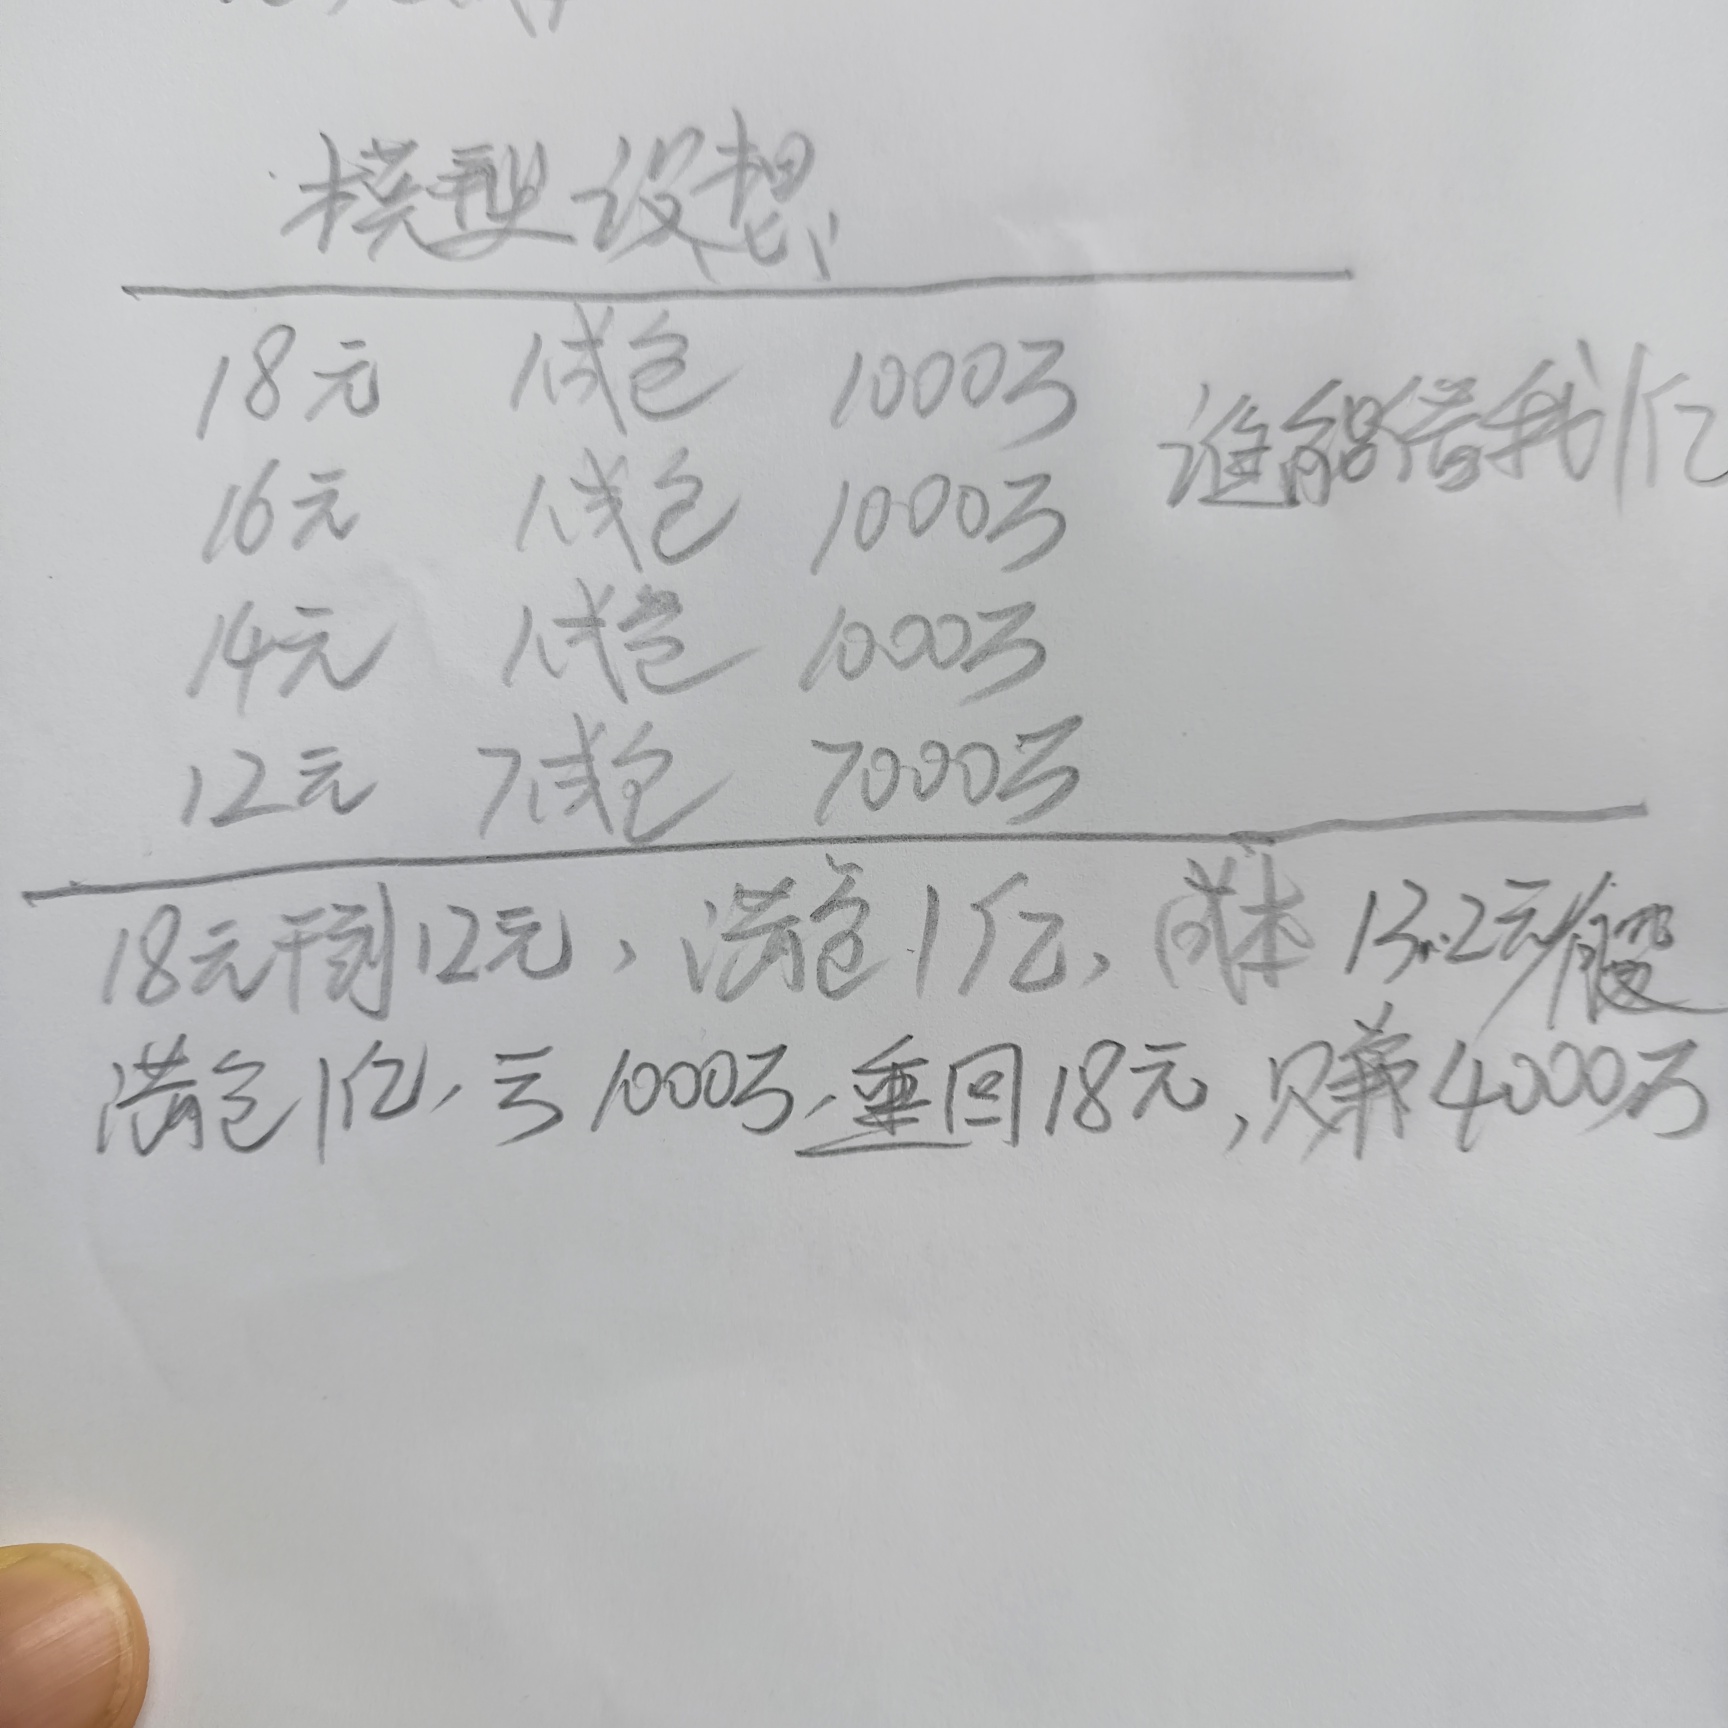 模型设想
18元 1成仓 1000万
谁能借我1亿
16元 1成仓 1000万
14元 1成仓 1000万
12元 7成仓 7000万
18元干到12元，满仓1亿，成本13.2元/股
满仓1亿，亏1000万，重回18元，只赚4000万